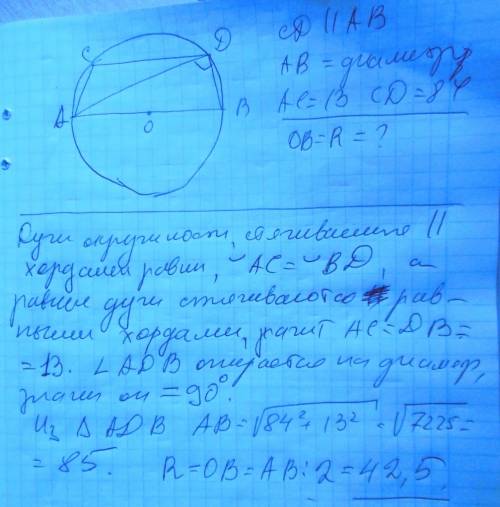 CD || AB
AB = диаметр
AC = 13 CD = 84
OB = R = ?
C
D
A
O
B
Дуги окружности, стягиваемые ||
хордами равны, ◡AC = ◡BD, а
равные дуги стягиваются рав-
ными хордами, значит AC = DB =
= 13. ∠ADB опирается на диаметр,
значит он = 90°.
Из Δ ADB AB = √84² + 13² = √7225 =
= 85. R = OB = AB : 2 = 42,5